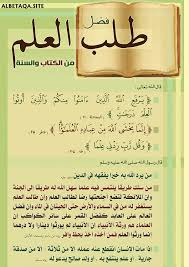 ALBETAQA.SITE
فضل
طلب العلم
من الكتاب والسنة
قال الله تعالى:
﴿ يَرْفَعِ اللَّهُ الَّذِينَ آمَنُوا مِنكُمْ وَالَّذِينَ أُوتُوا
الْعِلْمَ دَرَجَاتٍ ﴾
﴿ إِنَّمَا يَخْشَى اللَّهَ مِنْ عِبَادِهِ الْعُلَمَاءُ ﴾
قال رسول الله صلى الله عليه وسلم
من يرد الله به خيرا يفقهه في الدين
من سلك طريقا يلتمس فيه علما سهل الله له طريقا الى الجنة
وإن الملائكة لتضع أجنحتها رضا لطالب العلم وإن طالب العلم
يستغفر له من في السماء والأرض حتى الحيتان في الماء وإن فضل
العالم على العابد كفضل القمر على سائر الكواكب إن
العلماء هم ورثة الأنبياء إن الأنبياء لم يورثوا دينارا ولا درهما
إنما ورثوا العلم فمن أخذه أخذ بحظ وافر
إذا مات الإنسان انقطع عنه عمله إلا من ثلاثة إلا من صدقة
جارية، أو علم ينتفع به، أو ولد صالح يدعو له